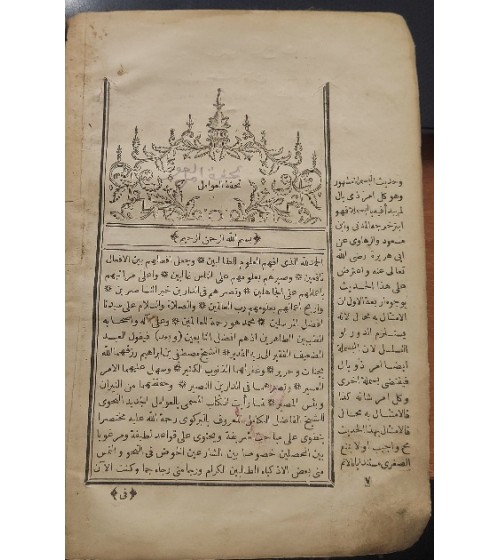 تحفة العوامل
بسم الله الرحمن الرحيم
الحمد لله الذى افهم العلوم للطالبين * وجعل فضلهم بين الافضال
وصيرهم بعلومهم على الناس غالبين * واعلى مراتبهم
على الجاهلين * ونصرهم فى الدارين خير الناصرين *
بعلومهم رب العالمين * والصلاة والسلام على سيدنا
افضل المرسلين * محمد هو رحمة للعالمين * وعلى آله واصحابه
الطاهرين اذهم افضل التابعين (وبعد) فيقول العبد
الضعيف الفقير الى ربه القدير * الشيخ مصطفى بن ابراهيم رزقهما الله
وحرير * وغفر لهما الذنوب الكثير * وسهل عليهما الامر
العسير * ونصرهما فى الدارين النصير * وحفظهما من النيران
وبئس المصير * لما رأيت الكتاب المسمى بالعوامل الجديد النحوى
الشيخ الفاضل الكامل المعروف بالبركوى رحمة الله عليه مختصرا
ينطوى على مباحث شريفة ويحتوى على قواعد لطيفة ومرغوبا
بين المحصلين خصوصا بين الشارعين الخوض فى النحو والتمس
منى بعض الاذكياء الطالبين الكرام ورجا منى رجاء جما وكنت الآن
فى
وحديث البسملة مشهور
وهو كل امر ذى بال
لم يبدأ فيه باسم الله فهو
ابتر خرجه المدنى وابن
مسعود والرهاوى عن
ابى هريرة رضى الله
تعالى عنه واعترض
على هذا الحديث
بوجوه اربعة الاول ان
الامتثال به محال لانه
يستلزم الدور او
التسلسل لان البسملة
ايضا امر ذو بال
فيقتضى بسملة اخرى
وكل امر شأنه كذا
فالامتثال به محال
فالامتثال بهذا الحديث
محال
الصغرى مستندا بانا لانم
٧